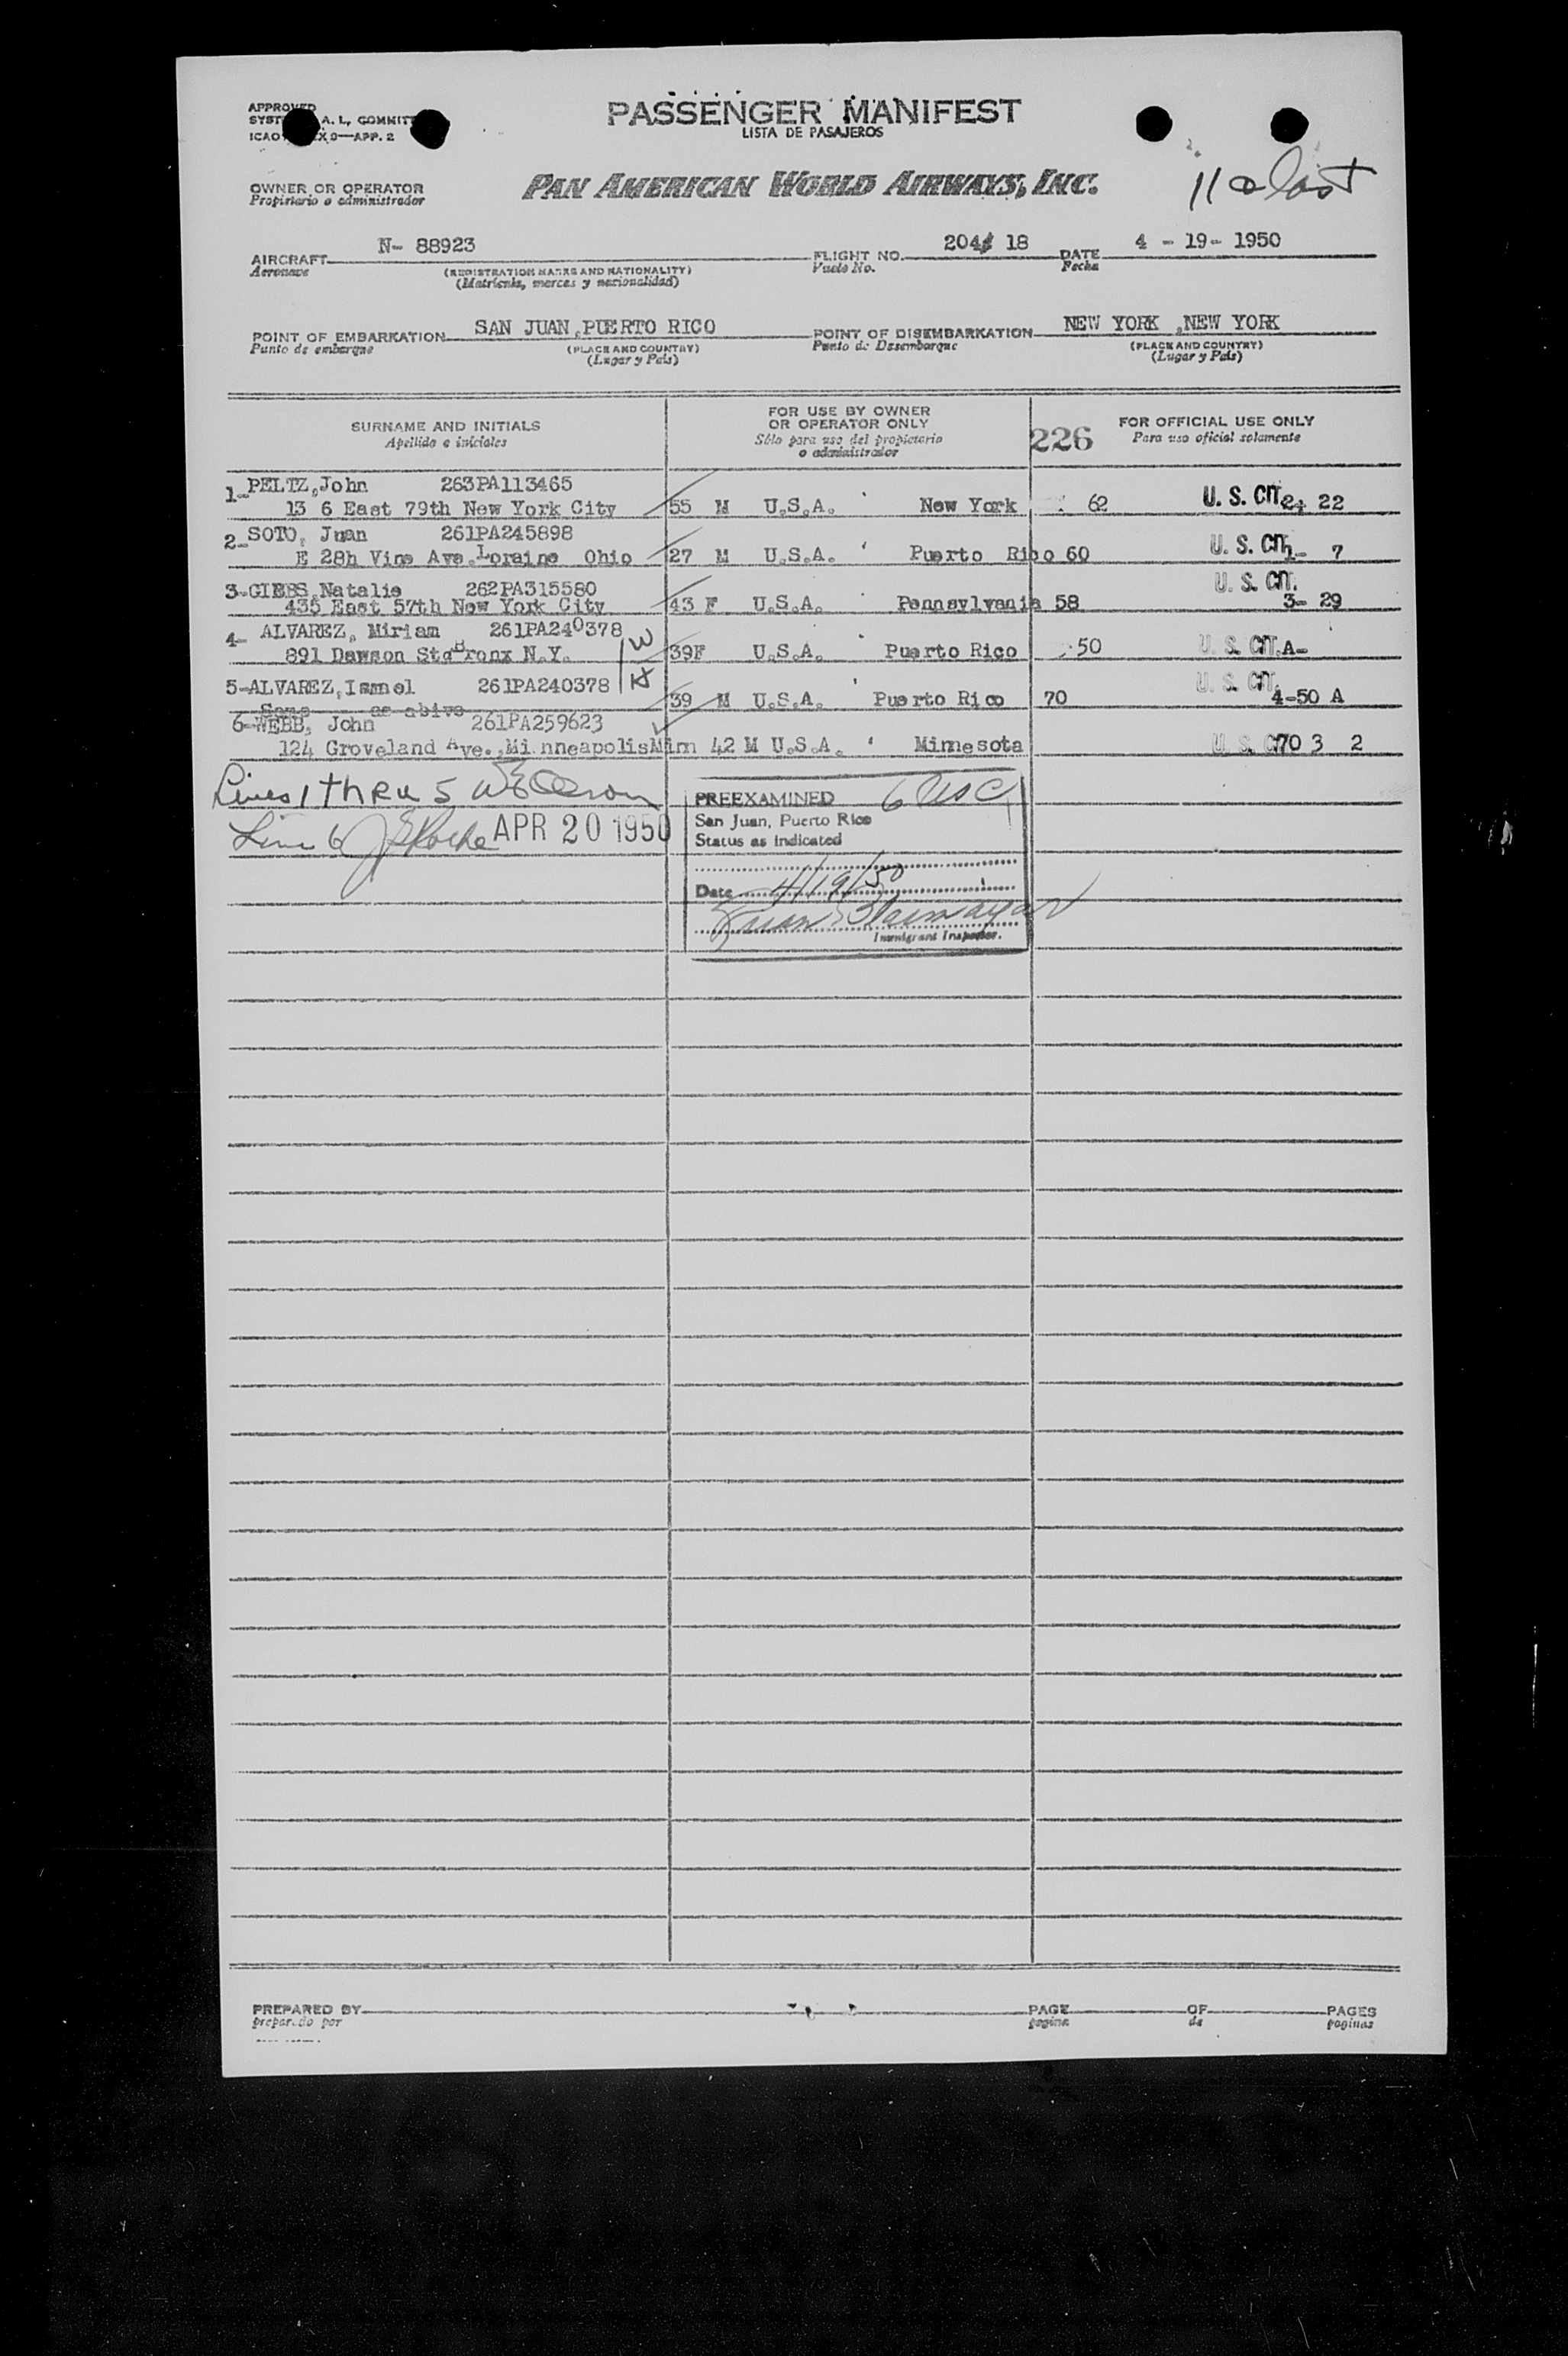 APPROVED
A. L, COMMITT
ICAO X 9—APP. 2
PASSENGER MANIFEST
LISTA DE PASAJEROS
OWNER OR OPERATOR
Propietario o administrador
PAN AMERICAN WORLD AIRWAYS, INC.
AIRCRAFT N- 88923
Aeronave
(REGISTRATION MARKS AND NATIONALITY)
(Matrícula, marcas y nacionalidad)
FLIGHT NO. 204/ 18
Vuelo No.
DATE 4 - 19- 1950
Fecha
POINT OF EMBARKATION SAN JUAN,PUERTO RICO
Punto de embarque
(PLACE AND COUNTRY)
(Lugar y País)
POINT OF DISEMBARKATION NEW YORK ,NEW YORK
Punto de Desembarque
(PLACE AND COUNTRY)
(Lugar y País)
SURNAME AND INITIALS
Apellido e iniciales
FOR USE BY OWNER
OR OPERATOR ONLY
Sólo para uso del propietario
o administrador
226
FOR OFFICIAL USE ONLY
Para uso oficial solamente
1-PELTZ,John 263PA113465
13 6 East 79th New York City 55 M U.S.A. New York 62 U. S. CIT. 2+ 22
2-SOTO, Juan 261PA245898
E 28h Vine Ave.Loraine Ohio 27 M U.S.A. Puerto Rico 60 U. S. CIT. 1- 7
3-GIBBS,Natalie 262PA315580 U. S. CIT.
435 East 57th New York City 43 F U.S.A. Pennsylvania 58 3- 29
4- ALVAREZ, Miriam 261PA240378 W
891 Dawson Sta Bronx N.Y. 39F U.S.A. Puerto Rico 50 U. S. CIT. A-
5-ALVAREZ,Ismel 261PA240378 H U. S. CIT.
Same as abive 39 M U.S.A. Puerto Rico 70 4-50 A
6-WEBB, John 261PA259623
124 Groveland Ave.,MinneapolisMinn 42 M U.S.A. Minnesota U. S. CIT. 70 3 2
Lines 1 thru 5
Line 6
APR 20 1950
PREEXAMINED 6 USC
San Juan, Puerto Rico
Status as Indicated
Date 4/19/50
Immigrant Inspector.
PREPARED BY
preparado por
PAGE OF PAGES
pagina de paginas